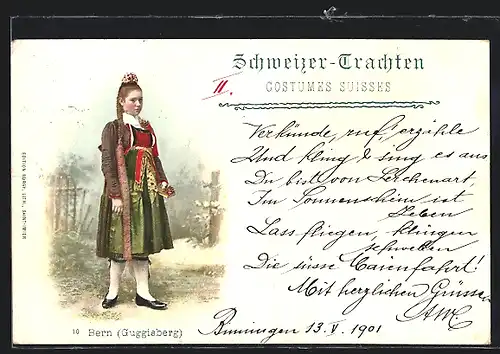 Schweizer-Trachten
COSTUMES SUISSES
II.
Verkünde, ruf, erzähle
Und kling & sing es aus
Du bist von Lerchenart,
Im Sonnenschein ist
Leben
Lass fliegen, klingen
schwellen
Die süsse Maienfahrt!
Mit herzlichen Grüssen
Binningen 13. V. 1901
10 Bern (Guggisberg)